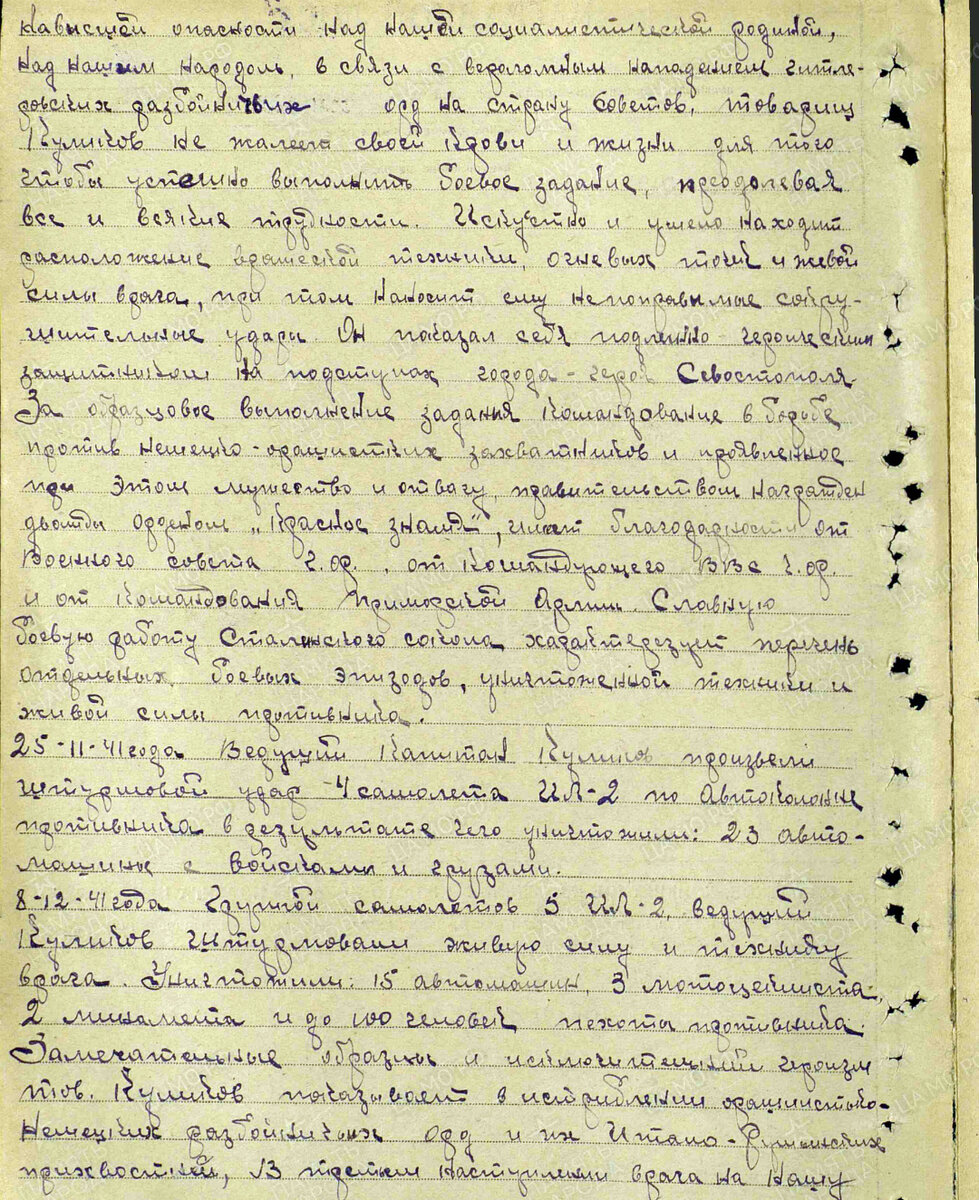 нависшей опасности над нашей социалистической родиной,
над нашим народом, в связи с вероломным нападением гитле-
ровских разбойничьих орд на страну Советов, товарищ
Куликов не жалеет своей крови и жизни для того
чтобы успешно выполнить боевое задание, преодолевая
все и всякие трудности. Искустно и умело находит
расположение вражеской техники, огневых точек и живой
силы врага, при том наносит ему непоправимые сокру-
шительные удары. Он показал себя подленно-героическим
защитником на подступах города-героя Севостополя
За образцовое выполнение заданья командование в борьбе
против немецко-фашистких захватчиков и проявленное
при этом мужество и отвагу, правительством награжден
дважды орденом „Красное знамя", имеет благодарности от
Военного совета Ч.Ф., от командующего ВВС Ч.Ф.
и от командования Приморской Армии. Славную
боевую работу Сталинского сокола характерезует перечень
отдельных боевых эпизодов, уничтоженной техники и
живой силы противника.
25-11-41 года Ведущий Капитан Куликов произвели
штурмовой удар 4 самолета ИЛ-2 по Автоколонне
противника в результате чего уничтожили: 23 авто-
машины с войсками и грузами.
8-12-41 года Группой самолетов 5 ИЛ-2, ведущий
Куликов Штурмовали живую силу и технику
врага. Уничтожили: 15 автомашин, 3 мотоциклиста,
2 минамета и до 100 человек пехоты противника.
Замечательные образцы и исключительный героизм
тов. Куликов показывает в истреблении фашистько-
немецких разбойничьих орд и их Итало-Румынских
прихвостней, В третьем наступлении врага на нашу